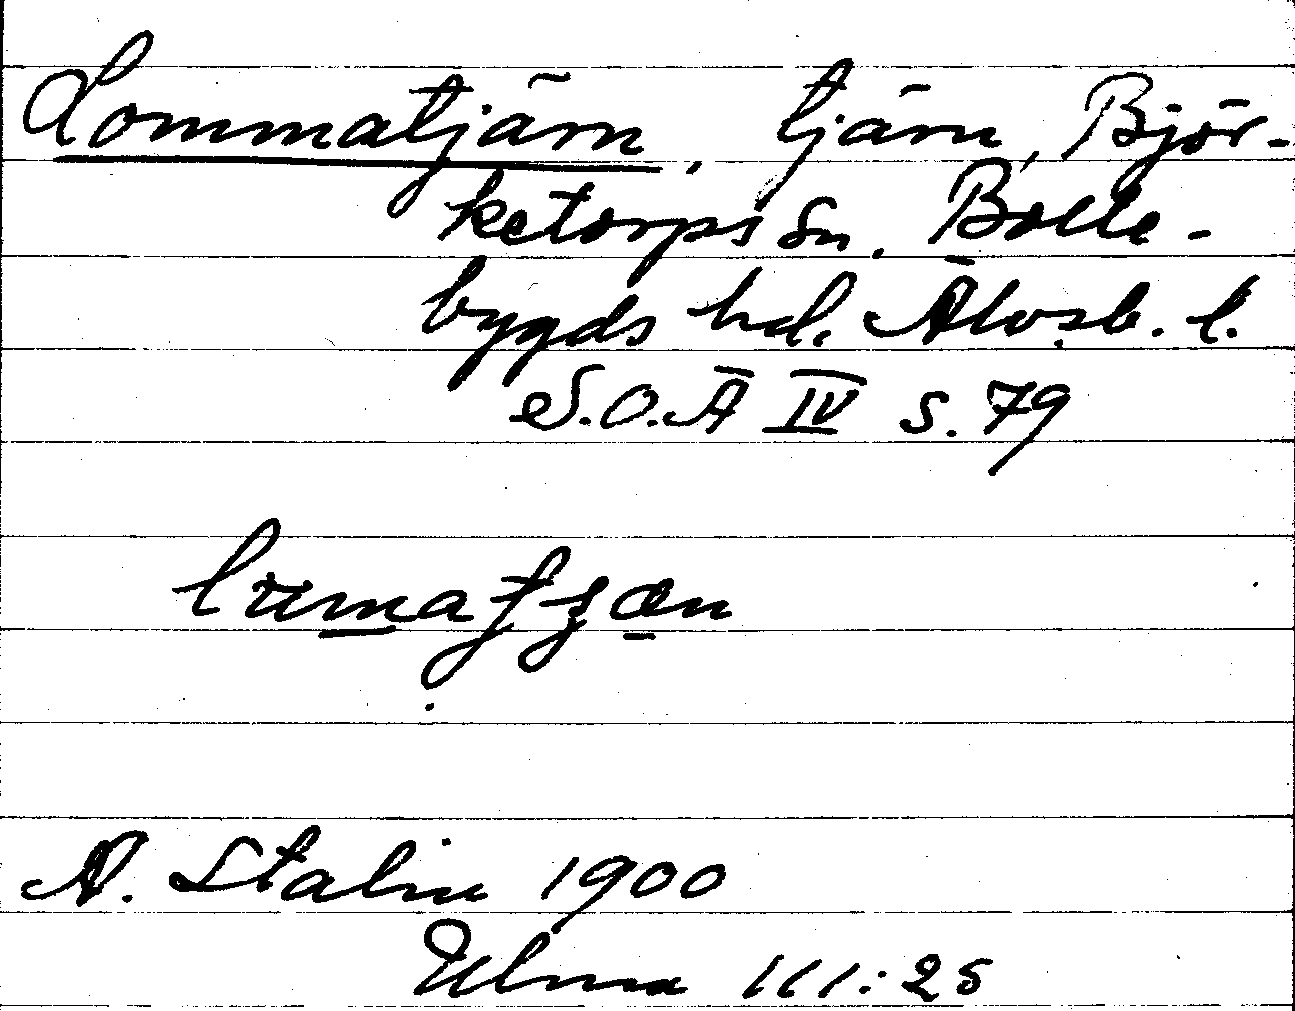 Lommatjärn, tjärn, Björ-
ketorps sn. Bolle-
bygds hd. Älvsb. l.
S.O.Ä IV s. 79
A. Stalin 1900
Ulma 111:25